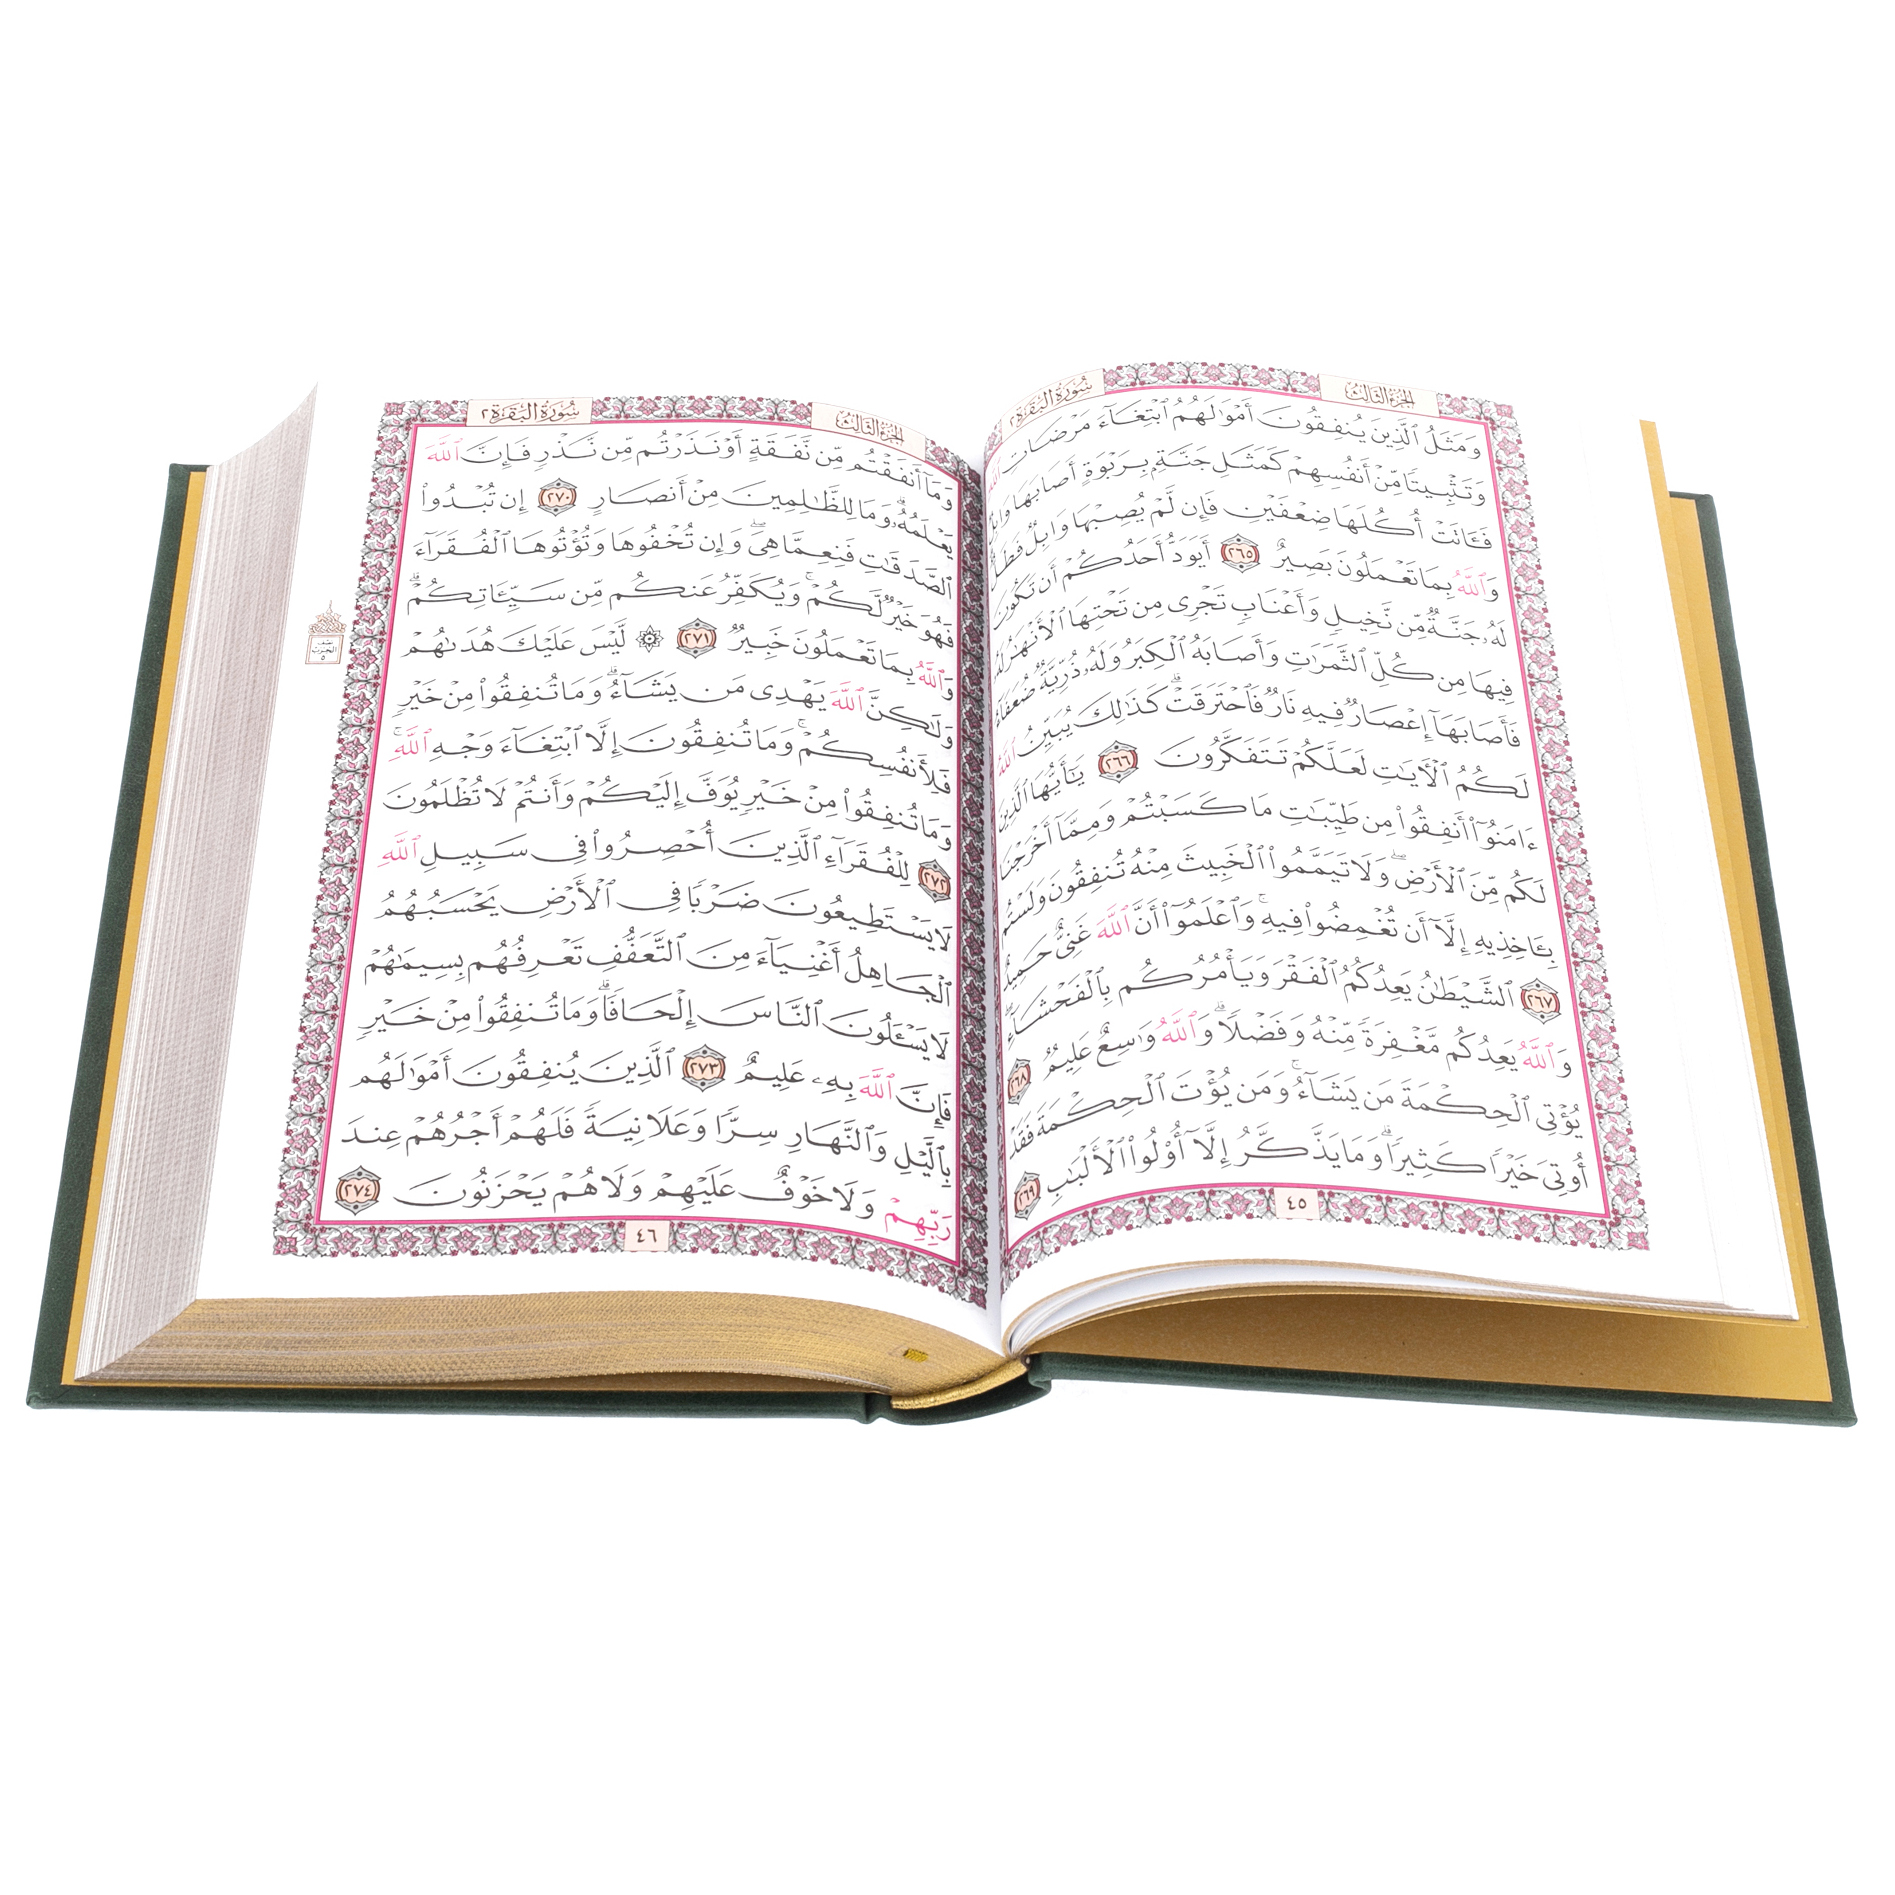 سُورَةُ البَقَرَةِ ٢
الجُزْءُ الثَّالِثُ
وَمَثَلُ ٱلَّذِينَ يُنفِقُونَ أَمْوَٰلَهُمُ ٱبْتِغَآءَ مَرْضَاتِ ٱللَّهِ
وَتَثْبِيتًا مِّنْ أَنفُسِهِمْ كَمَثَلِ جَنَّةٍۭ بِرَبْوَةٍ أَصَابَهَا وَابِلٌ
فَـَٔاتَتْ أُكُلَهَا ضِعْفَيْنِ فَإِن لَّمْ يُصِبْهَا وَابِلٌ فَطَلٌّ
وَٱللَّهُ بِمَا تَعْمَلُونَ بَصِيرٌ ٢٦٥ أَيَوَدُّ أَحَدُكُمْ أَن تَكُونَ
لَهُۥ جَنَّةٌ مِّن نَّخِيلٍ وَأَعْنَابٍ تَجْرِى مِن تَحْتِهَا ٱلْأَنْهَٰرُ لَهُۥ
فِيهَا مِن كُلِّ ٱلثَّمَرَٰتِ وَأَصَابَهُ ٱلْكِبَرُ وَلَهُۥ ذُرِّيَّةٌ ضُعَفَآءُ
فَأَصَابَهَآ إِعْصَارٌ فِيهِ نَارٌ فَٱحْتَرَقَتْ ۗ كَذَٰلِكَ يُبَيِّنُ ٱللَّهُ
لَكُمُ ٱلْـَٔايَٰتِ لَعَلَّكُمْ تَتَفَكَّرُونَ ٢٦٦ يَٰٓأَيُّهَا ٱلَّذِينَ
ءَامَنُوٓا۟ أَنفِقُوا۟ مِن طَيِّبَٰتِ مَا كَسَبْتُمْ وَمِمَّآ أَخْرَجْنَا
لَكُم مِّنَ ٱلْأَرْضِ ۖ وَلَا تَيَمَّمُوا۟ ٱلْخَبِيثَ مِنْهُ تُنفِقُونَ وَلَسْتُم
بِـَٔاخِذِيهِ إِلَّآ أَن تُغْمِضُوا۟ فِيهِ ۚ وَٱعْلَمُوٓا۟ أَنَّ ٱللَّهَ غَنِىٌّ حَمِيدٌ
٢٦٧ ٱلشَّيْطَٰنُ يَعِدُكُمُ ٱلْفَقْرَ وَيَأْمُرُكُم بِٱلْفَحْشَآءِ ۖ
وَٱللَّهُ يَعِدُكُم مَّغْفِرَةً مِّنْهُ وَفَضْلًا ۗ وَٱللَّهُ وَٰسِعٌ عَلِيمٌ ٢٦٨
يُؤْتِى ٱلْحِكْمَةَ مَن يَشَآءُ ۚ وَمَن يُؤْتَ ٱلْحِكْمَةَ فَقَدْ
أُوتِىَ خَيْرًا كَثِيرًا ۗ وَمَا يَذَّكَّرُ إِلَّآ أُو۟لُوا۟ ٱلْأَلْبَٰبِ ٢٦٩
٤٥
الجُزْءُ الثَّالِثُ
سُورَةُ البَقَرَةِ ٢
وَمَآ أَنفَقْتُم مِّن نَّفَقَةٍ أَوْ نَذَرْتُم مِّن نَّذْرٍ فَإِنَّ ٱللَّهَ
يَعْلَمُهُۥ ۗ وَمَا لِلظَّٰلِمِينَ مِنْ أَنصَارٍ ٢٧٠ إِن تُبْدُوا۟
ٱلصَّدَقَٰتِ فَنِعِمَّا هِىَ ۖ وَإِن تُخْفُوهَا وَتُؤْتُوهَا ٱلْفُقَرَآءَ
فَهُوَ خَيْرٌ لَّكُمْ ۚ وَيُكَفِّرُ عَنكُم مِّن سَيِّـَٔاتِكُمْ ۗ
وَٱللَّهُ بِمَا تَعْمَلُونَ خَبِيرٌ ٢٧١ ۞ لَّيْسَ عَلَيْكَ هُدَىٰهُمْ
وَلَٰكِنَّ ٱللَّهَ يَهْدِى مَن يَشَآءُ ۗ وَمَا تُنفِقُوا۟ مِنْ خَيْرٍ
فَلِأَنفُسِكُمْ ۚ وَمَا تُنفِقُونَ إِلَّا ٱبْتِغَآءَ وَجْهِ ٱللَّهِ ۚ
وَمَا تُنفِقُوا۟ مِنْ خَيْرٍ يُوَفَّ إِلَيْكُمْ وَأَنتُمْ لَا تُظْلَمُونَ
٢٧٢ لِلْفُقَرَآءِ ٱلَّذِينَ أُحْصِرُوا۟ فِى سَبِيلِ ٱللَّهِ
لَا يَسْتَطِيعُونَ ضَرْبًا فِى ٱلْأَرْضِ يَحْسَبُهُمُ
ٱلْجَاهِلُ أَغْنِيَآءَ مِنَ ٱلتَّعَفُّفِ تَعْرِفُهُم بِسِيمَٰهُمْ
لَا يَسْـَٔلُونَ ٱلنَّاسَ إِلْحَافًا ۗ وَمَا تُنفِقُوا۟ مِنْ خَيْرٍ
فَإِنَّ ٱللَّهَ بِهِۦ عَلِيمٌ ٢٧٣ ٱلَّذِينَ يُنفِقُونَ أَمْوَٰلَهُم
بِٱلَّيْلِ وَٱلنَّهَارِ سِرًّا وَعَلَانِيَةً فَلَهُمْ أَجْرُهُمْ عِندَ
رَبِّهِمْ وَلَا خَوْفٌ عَلَيْهِمْ وَلَا هُمْ يَحْزَنُونَ ٢٧٤
٤٦
نصف
الحزب
٥